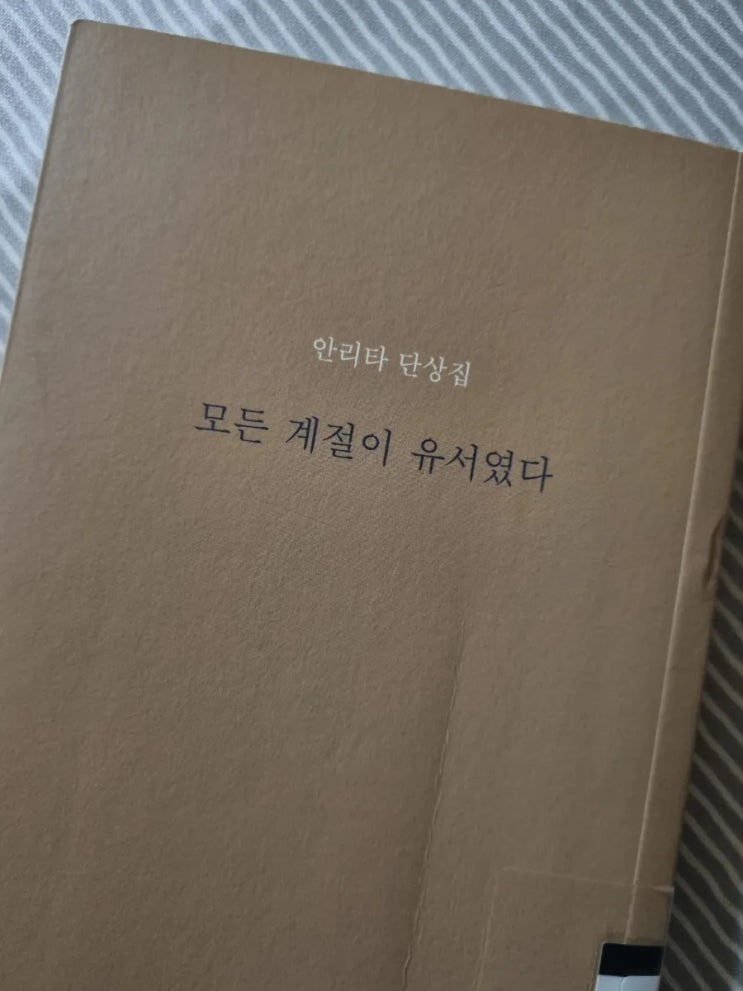 안리타 단상집
모든 계절이 유서였다